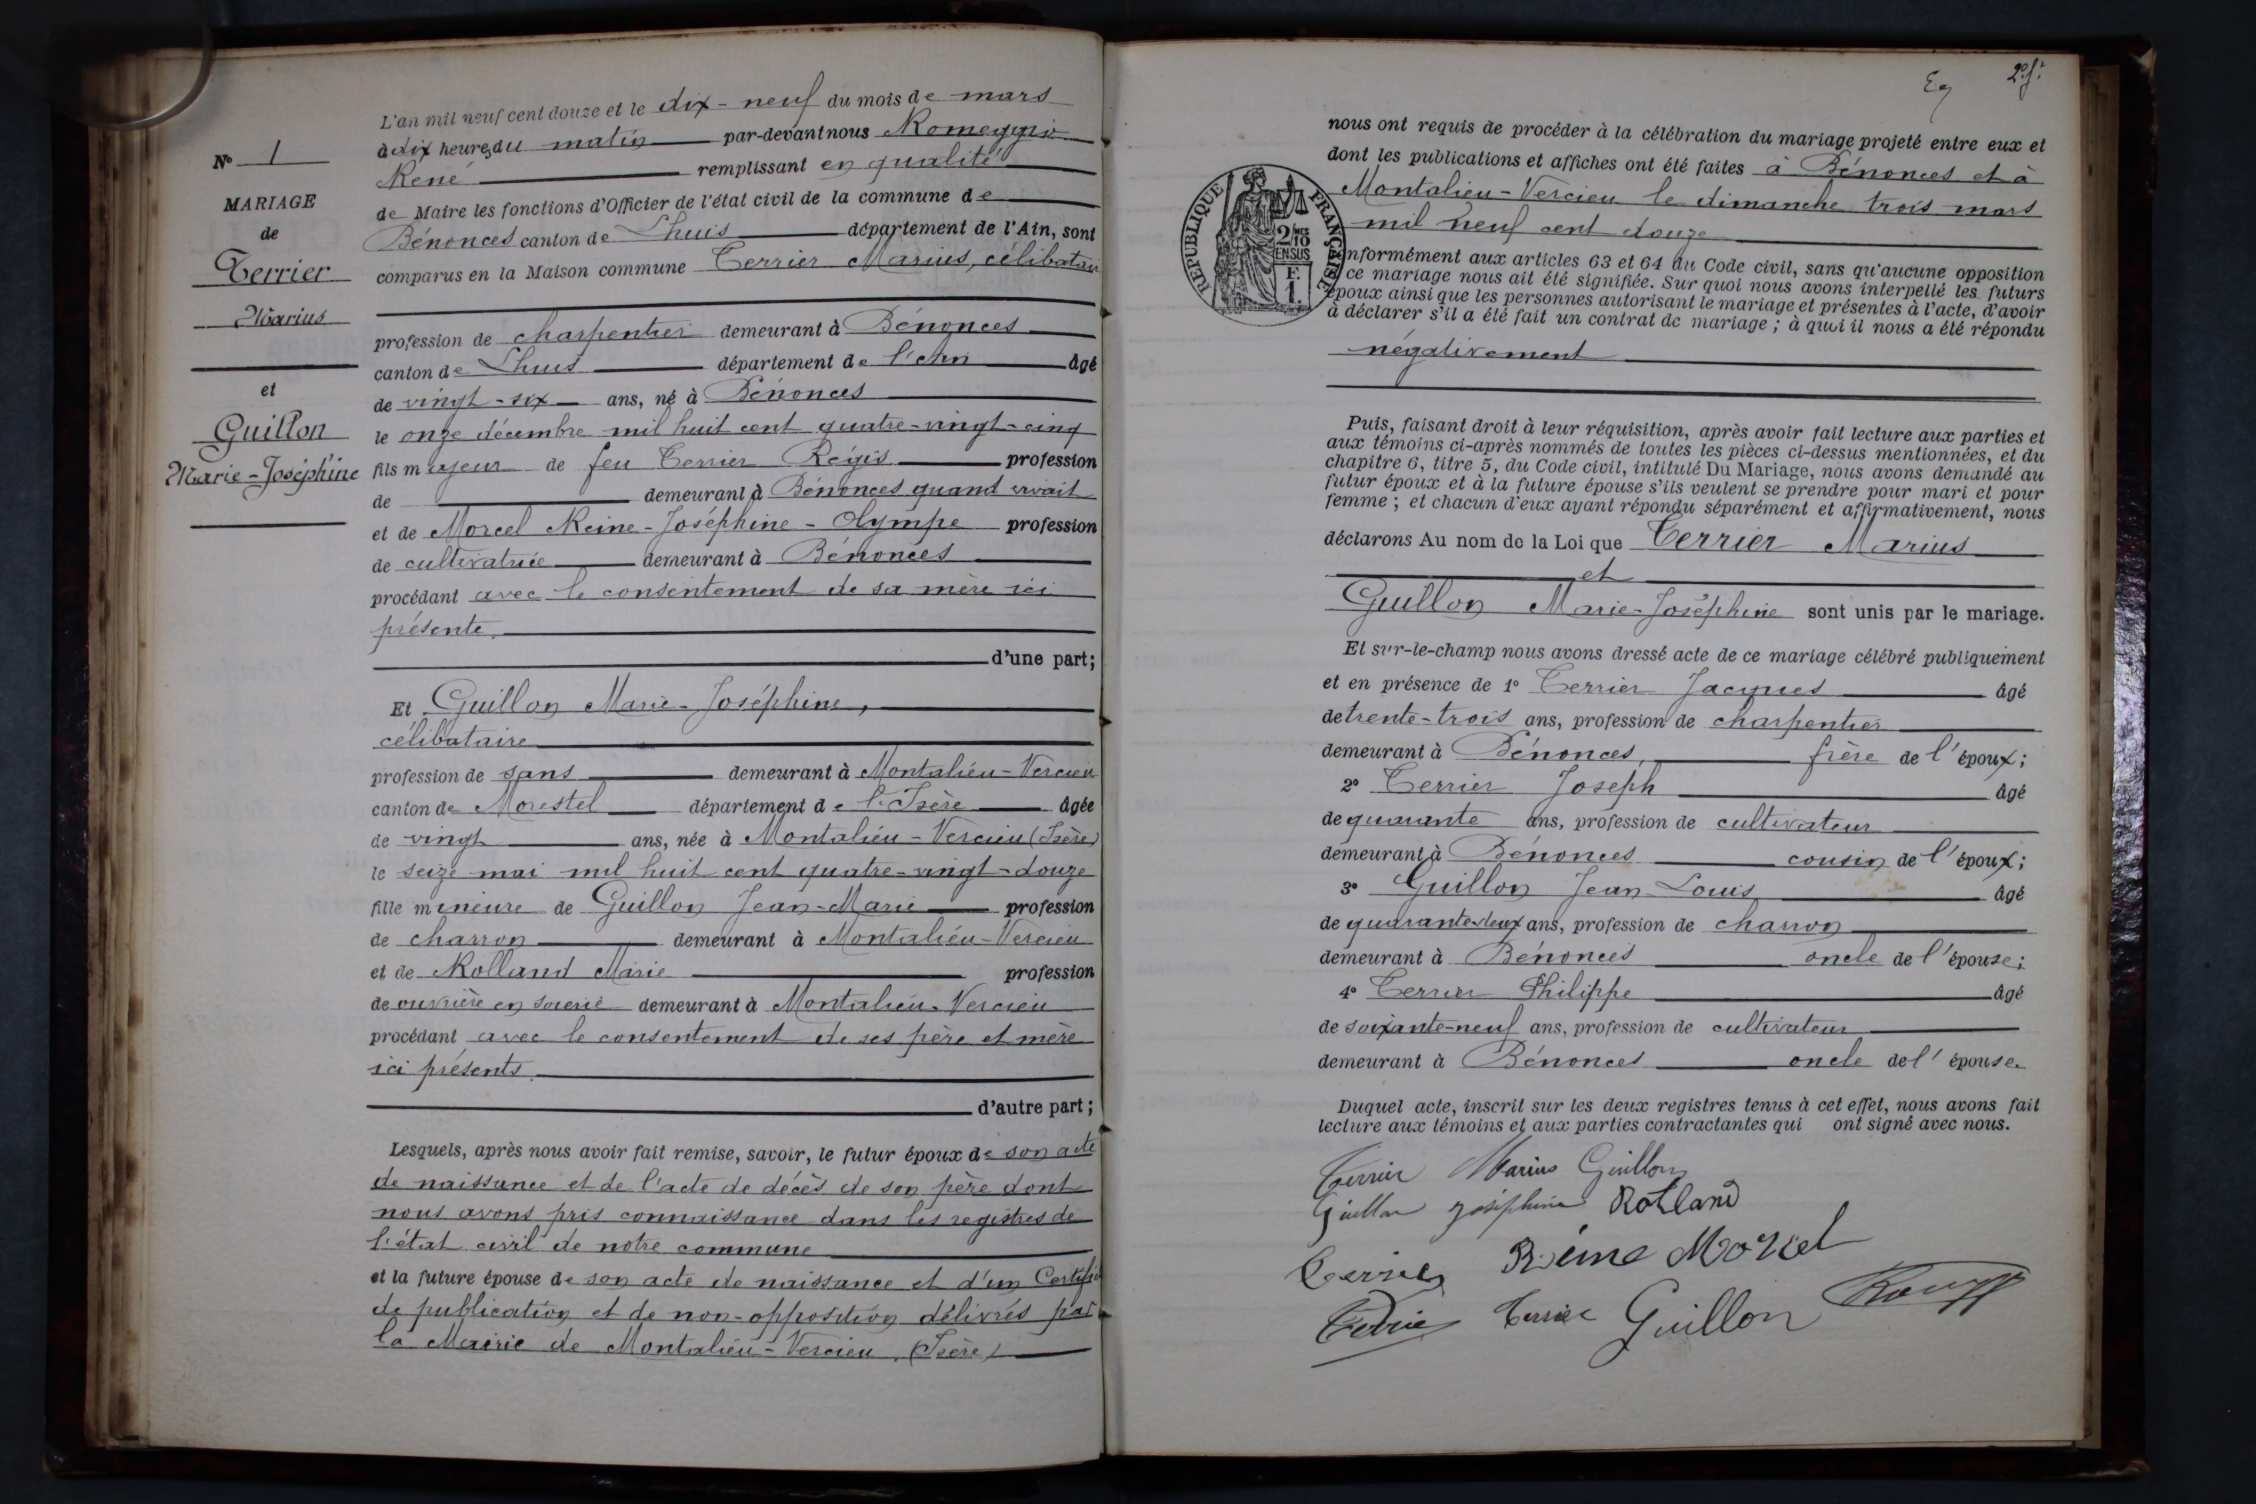 L'an mil neuf cent douze et le dix-neuf du mois de mars
à dix heures du matin par-devant nous
René remplissant en qualité
de Maire les fonctions d'Officier de l'état civil de la commune de
Bénonces canton de Lhuis département de l'Ain, sont
comparus en la Maison commune Terrier Marius, célibataire
profession de charpentier demeurant à Bénonces
canton de Lhuis département de l'Ain âgé
de vingt-six ans, né à Bénonces
le onze décembre mil huit cent quatre-vingt-cinq
fils majeur de feu Terrier Régis profession
de demeurant à Bénonces quand vivait
et de Morcel Reine-Joséphine-Olympe profession
de cultivatrice demeurant à Bénonces
procédant avec le consentement de sa mère ici
présente.
d'une part;
Et Guillon Marie-Joséphine,
célibataire
profession de sans demeurant à Montalieu-Vercieu
canton de Morestel département de l'Isère âgée
de vingt ans, née à Montalieu-Vercieu (Isère)
le seize mai mil huit cent quatre-vingt-douze
fille mineure de Guillon Jean-Marie profession
de charron demeurant à Montalieu-Vercieu
et de Rolland Marie profession
de ouvrière en soierie demeurant à Montalieu-Vercieu
procédant avec le consentement de ses père et mère
ici présents.
d'autre part;
Lesquels, après nous avoir fait remise, savoir, le futur époux de son acte
de naissance et de l'acte de décès de son père dont
nous avons pris connaissance dans les registres de
l'état civil de notre commune
et la future épouse de son acte de naissance et d'un Certificat
de publication et de non-opposition délivrés par
la Mairie de Montalieu-Vercieu. (Isère)
No 1
MARIAGE
de
Terrier
Marius
et
Guillon
Marie-Joséphine
2e ft
nous ont requis de procéder à la célébration du mariage projeté entre eux et
dont les publications et affiches ont été faites à Bénonces et à
Montalieu-Vercieu le dimanche trois mars
mil neuf cent douze
nformément aux articles 63 et 64 du Code civil, sans qu'aucune opposition
ce mariage nous ait été signifiée. Sur quoi nous avons interpellé les futurs
époux ainsi que les personnes autorisant le mariage et présentes à l'acte, d'avoir
à déclarer s'il a été fait un contrat de mariage; à quoi il nous a été répondu
négativement
REPUBLIQUE FRANÇAISE
2/10
EN SUS
F.
1.
Puis, faisant droit à leur réquisition, après avoir fait lecture aux parties et
aux témoins ci-après nommés de toutes les pièces ci-dessus mentionnées, et du
chapitre 6, titre 5, du Code civil, intitulé Du Mariage, nous avons demandé au
futur époux et à la future épouse s'ils veulent se prendre pour mari et pour
femme; et chacun d'eux ayant répondu séparément et affirmativement, nous
déclarons Au nom de la Loi que Terrier Marius
et
Guillon Marie-Joséphine sont unis par le mariage.
Et sur-le-champ nous avons dressé acte de ce mariage célébré publiquement
et en présence de 1° Terrier Jacques âgé
de trente-trois ans, profession de charpentier
demeurant à Bénonces, frère de l'époux;
2° Terrier Joseph âgé
de quarante ans, profession de cultivateur
demeurant à Bénonces cousin de l'époux;
3° Guillon Jean-Louis âgé
de quarante-deux ans, profession de charron
demeurant à Bénonces oncle de l'épouse;
4° Terrier Philippe âgé
de soixante-neuf ans, profession de cultivateur
demeurant à Bénonces oncle de l'épouse.
Duquel acte, inscrit sur les deux registres tenus à cet effet, nous avons fait
lecture aux témoins et aux parties contractantes qui ont signé avec nous.
Terrier Marius Guillon
Guillon Joséphine Rolland
Terrier Reine Morcel
Terrier Terrier Guillon